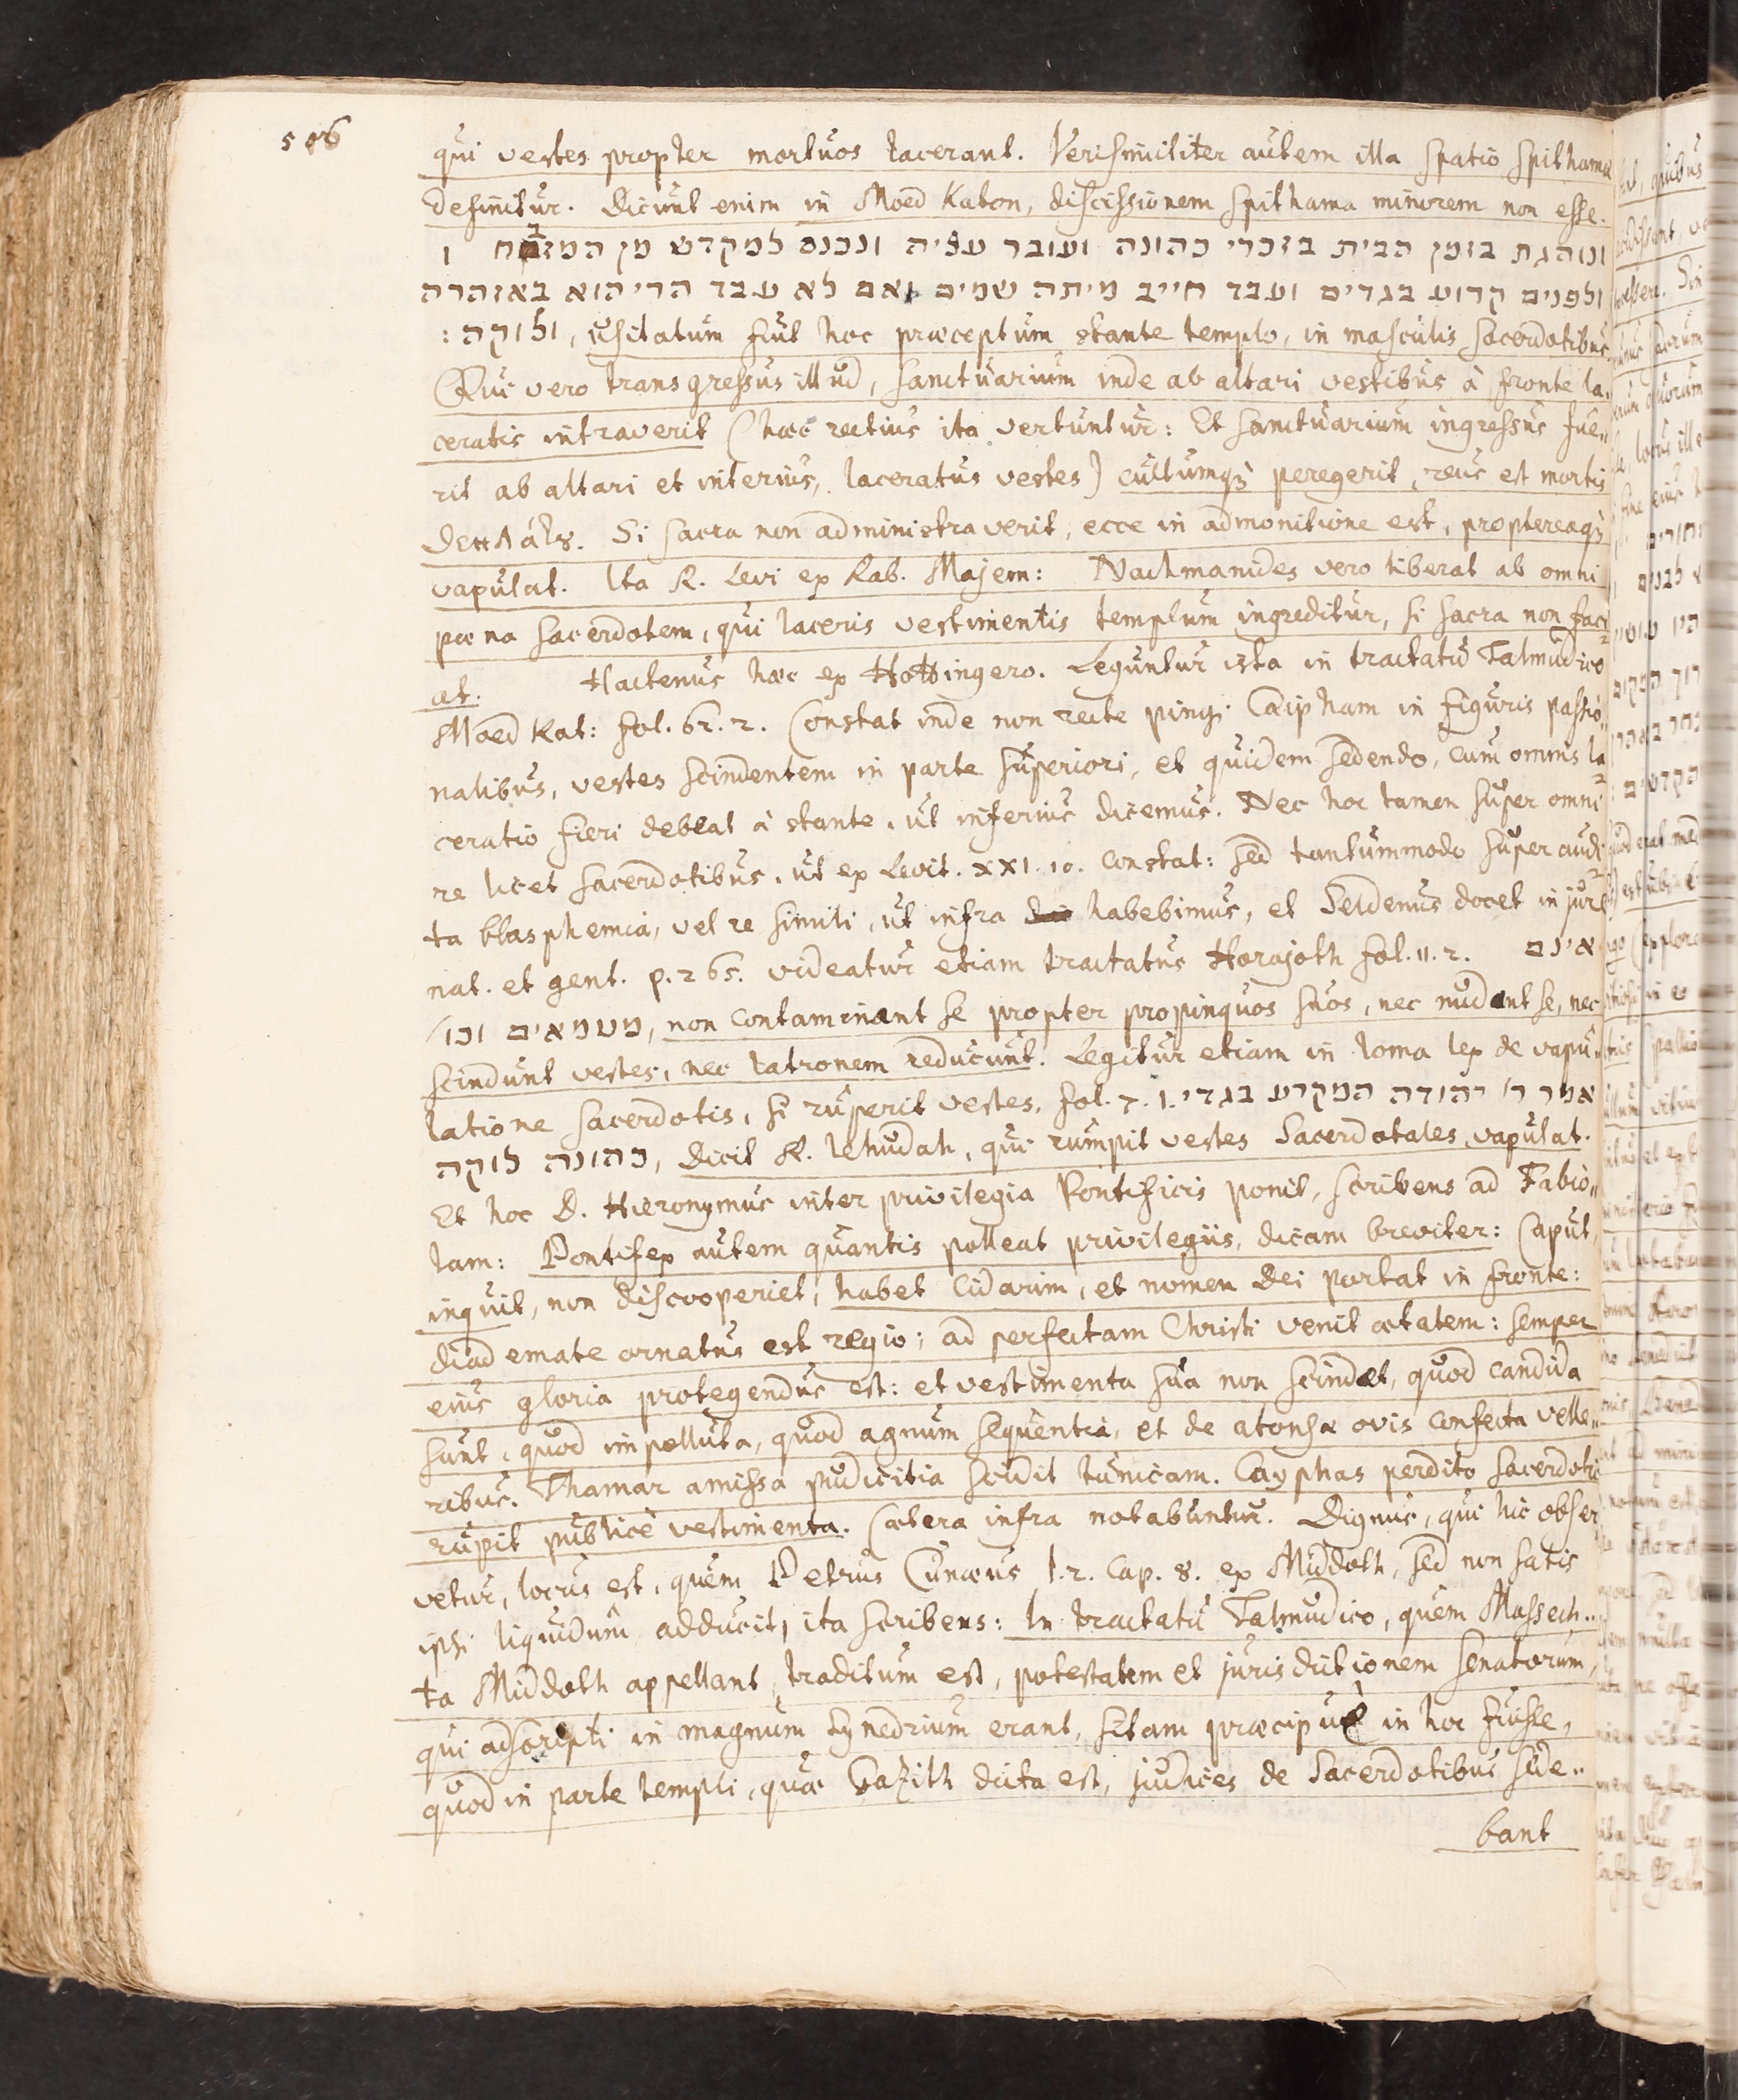 506
qui vestes propter mortuos lacerant. Verisimiliter autem illa spatio spithamæ
definitur. Dicunt enim in Moed Katon, discissionem spithama minorem non esse.
ונוהגת בזמן הבית בזכרי כהונה ועובר עליה ונכנס למקדש מן המזבח ו
ולפנים קרוע בגדים ועבד חייב מיתה שמים ואם לא עבד הרי הוא באזהרה
ולוקה, usitatum fuit hoc præceptum stante templo, in masculis sacerdotibus:
Qui vero transgressus illud, sanctuarium inde ab altari vestibus à fronte la„
ceratis intraverit (hæc rectius ita vertuntur: Et sanctuarium ingressus fue„
rit ab altari et interius, laceratus vestes) cultumq₃ peregerit, reus est mortis
Si sacra non administraverit, ecce in admonitione est, proptereaq₃
vapulat. Ita R. Levi ex Rab. Majem: Nachmanides vero liberat ab omni
pœna sacerdotem, qui laceris vestimentis templum ingreditur, si sacra non faci
at. Hactenus hæc ex Hottingero. Leguntur ista in tractatu Talmudico
Moed Kat: fol. 62. 2. Constat inde non recte pingi Caipham in figuris passio„
nalibus, vestes scindentem in parte superiori, et quidem sedendo, cum omnis la
ceratio fieri debeat à stante, ut inferius dicemus. Nec hoc tamen super omni
re licet sacerdotibus, ut ex Levit. XXI. 10. constat: sed tantummodo super audi
ta blasphemia, vel re simili, ut infra habebimus, et Seldenus docet in jure
nat. et gent. p. 265. videatur etiam tractatus Horajoth fol. 11. 2. אינם
מטמאים וכו׳, non contaminant se propter propinquos suos, nec nudant se, nec
scindunt vestes, nec latronem reducunt. Legitur etiam in Ioma lex de vapu„
latione sacerdotis, si ruperit vestes, fol. 7. 1. אמר ר׳ יהודה המקרע בגדי
כהונה לוקה, Dicit R. Iehudah, qui rumpit vestes Sacerdotales, vapulat.
Et hoc D. Hieronymus inter privilegia Pontificis ponit, scribens ad Fabio„
lam: Pontifex autem quantis polleat privilegiis, dicam breviter: Caput,
inquit, non discooperiet, habet Cidarim, et nomen Dei portat in fronte:
diademate ornatus est regio; ad perfectam Christi venit ætatem: semper
eius gloria protegendus est: et vestimenta sua non scindet, quod candida
sunt, quod impolluta, quod agnum sequentia, et de atonsæ ovis confecta velle„
ribus. Thamar amissa pudicitia scidit tunicam. Cayphas perdito sacerdotio
rupit publicè vestimenta. Cætera infra notabuntur. Dignus, qui hic obser
vetur, locus est, quem Petrus Cunæus l. 2. Cap. 8. ex Middoth, sed non satis
ipsi liquidum adducit, ita scribens: In tractatu Talmudico, quem Massech„
ta Middoth appellant, traditum est, potestatem et jurisdictionem senatorum,
qui adscripti in magnum Synedrium erant, sitam præcipuè in hoc fuisse,
quod in parte templi, quæ Gazith dicta est, judices de Sacerdotibus sede„
bant